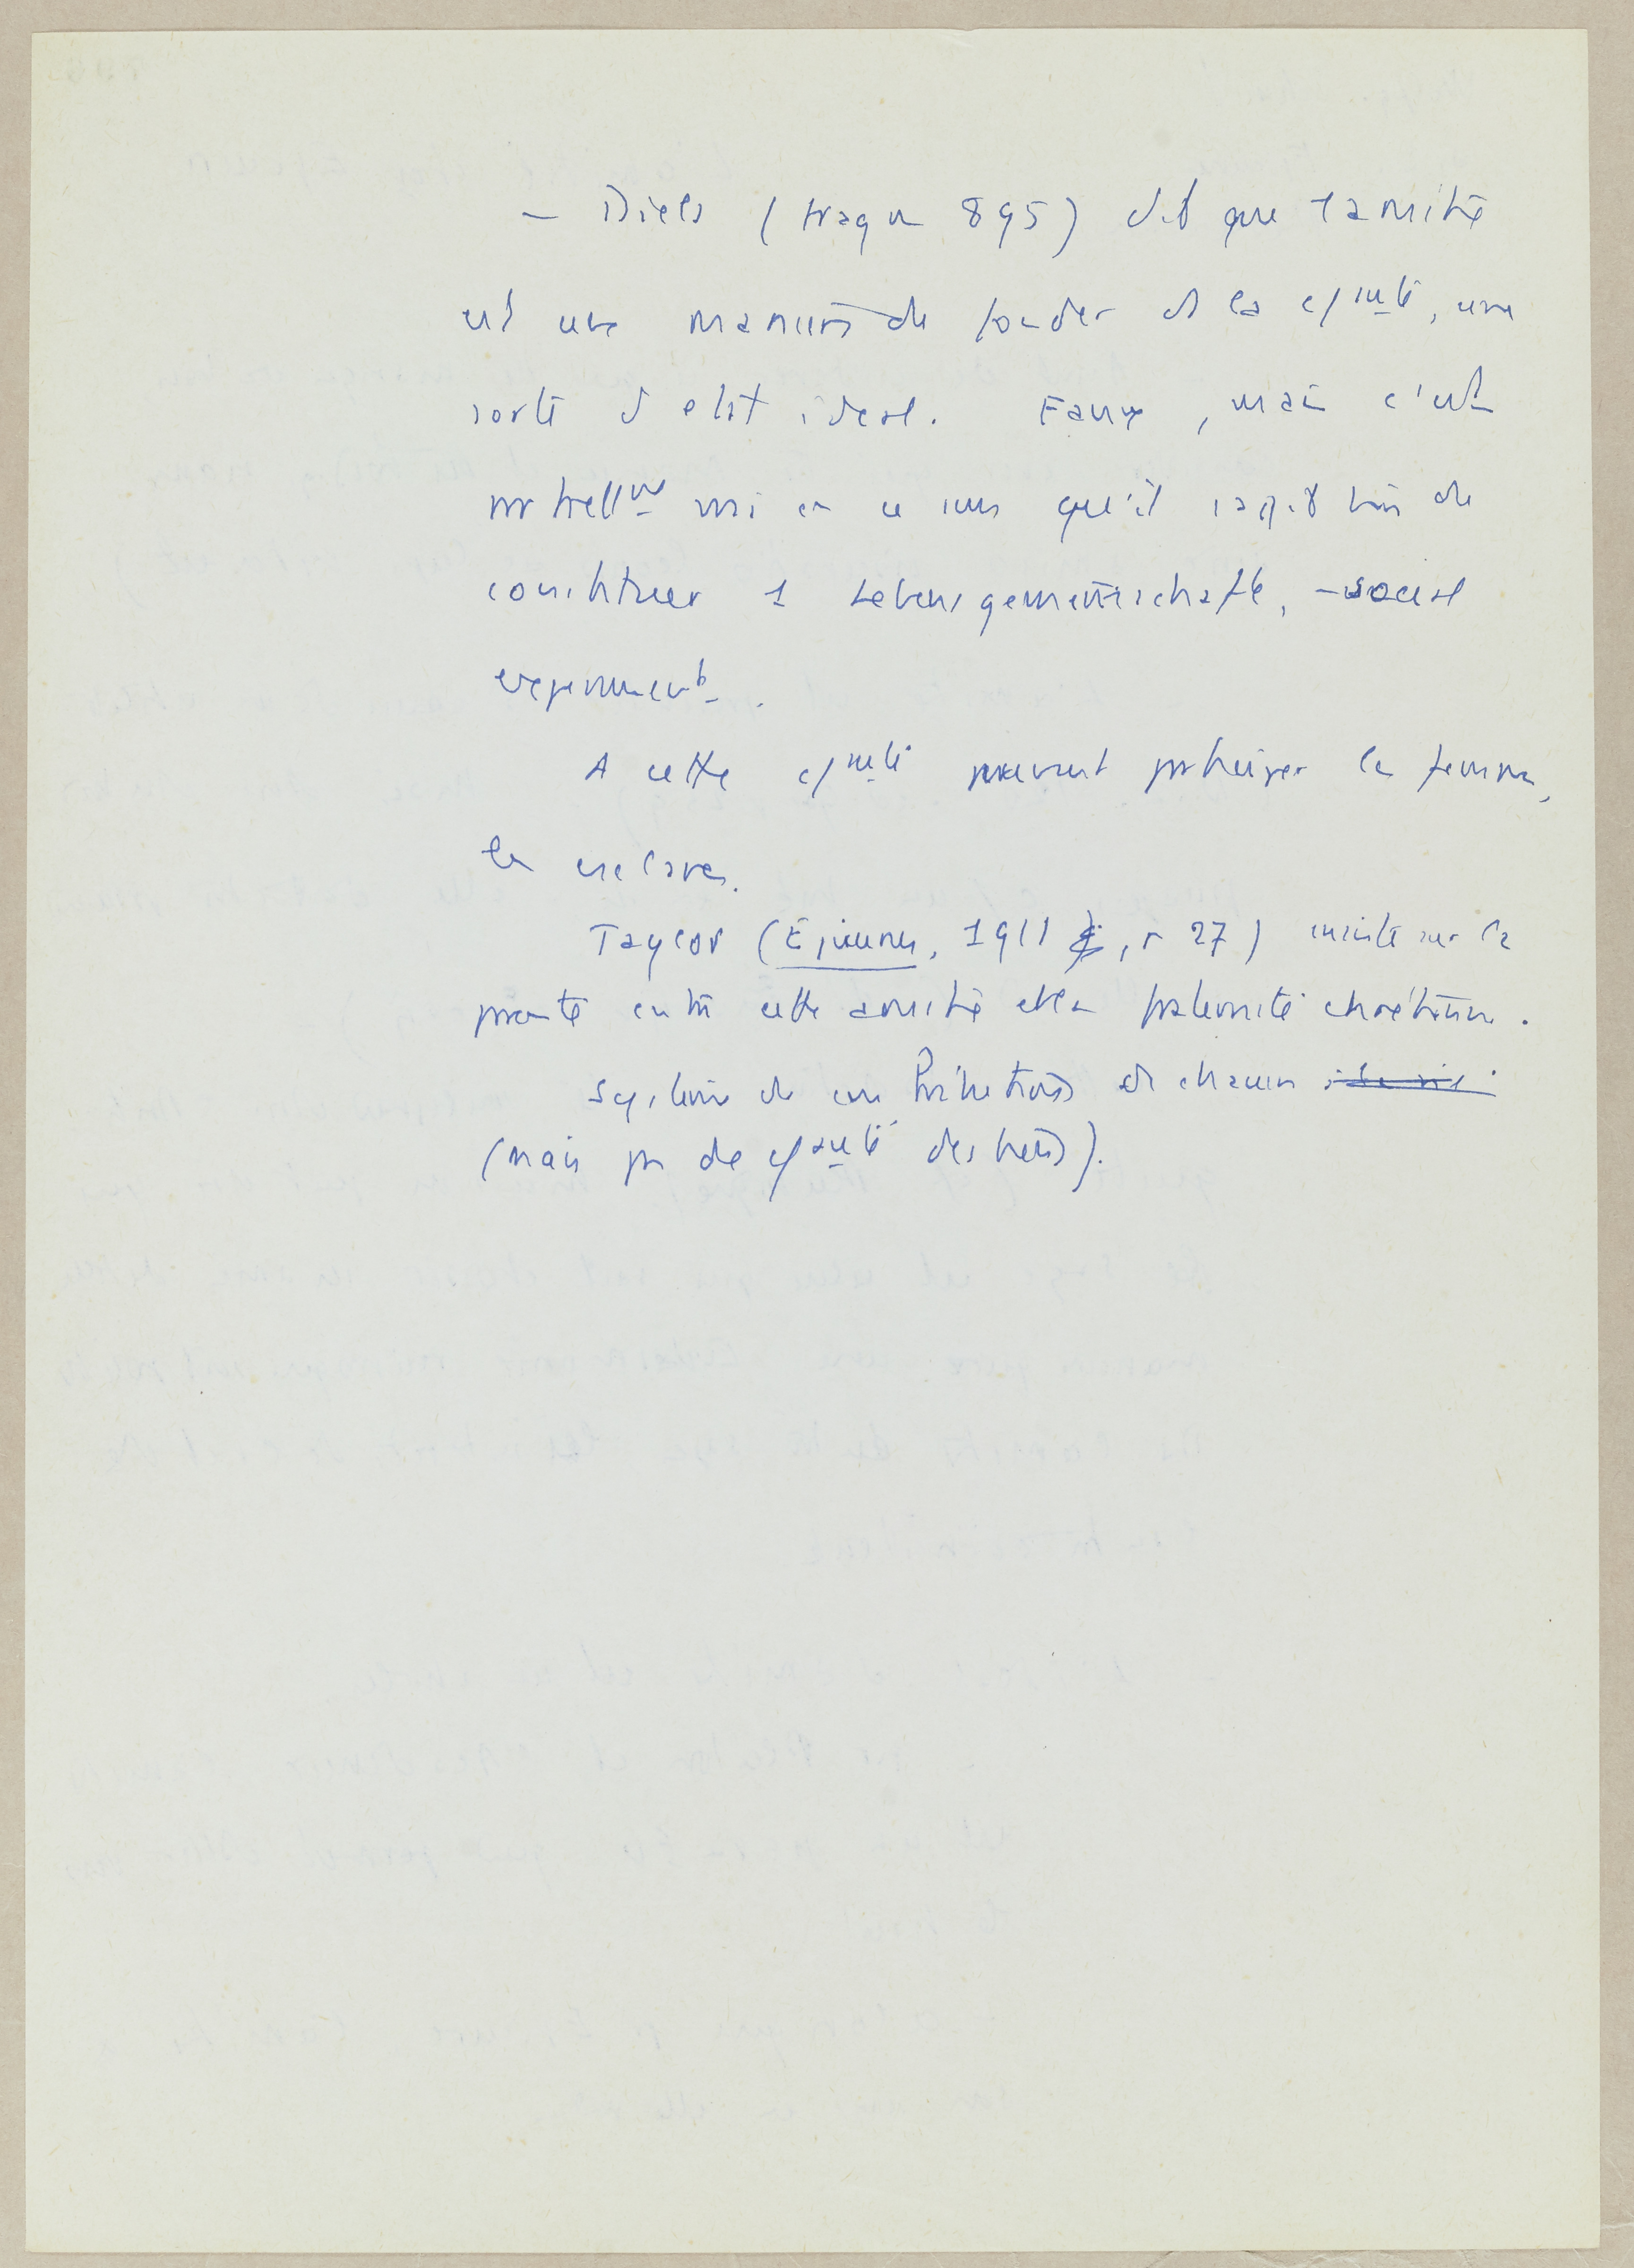 — Diels (fragm 895) dit que l'amitié
est une manière de fonder de la c/auté, une
sorte d'etat ideal. Faux, mais c'est
en ce sens qu'il s'agit bien de
constituer 1 Lebensgemeinschaft, — social
experiment.
A cette c/auté peuvent participer les femmes,
les esclaves.
Taylor (Epicurus, 1911, p 27) insiste sur la
parenté entre cette amitié et la fraternité chrétienne.
Système de contributions de chacun
(mais pas de c/auté des biens).